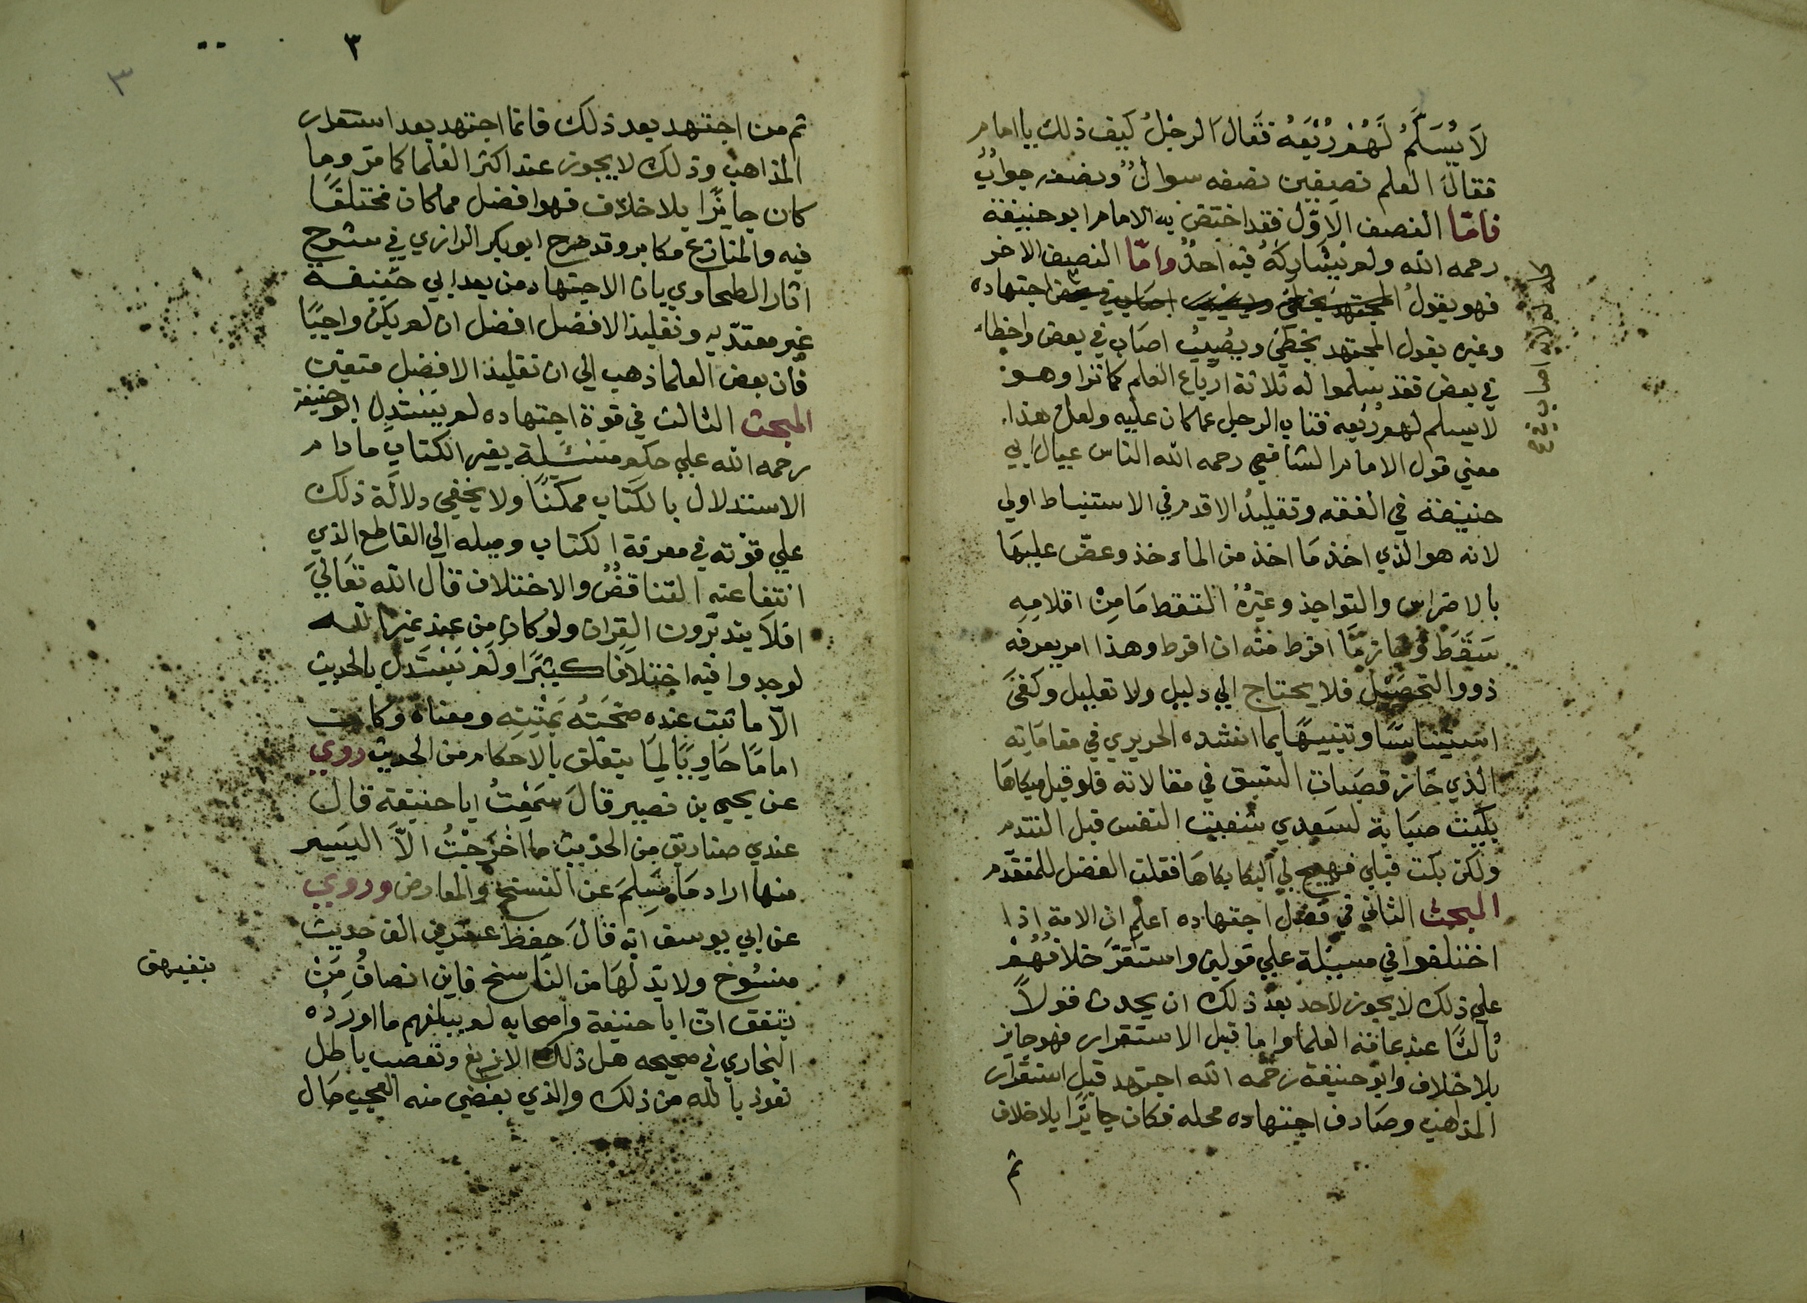 لَا يُسَلِّمُ لَهُمْ رُبْعَهُ فَقَالَ الرجلُ كيف ذلك يا امام
فقالَ العلم نصفين نصفه سوالٌ ونصفه جوابٌ
فامّا النصف الاوّل فقد اختص به الامام ابو حنيفة
رحمه الله ولم يشاركهُ فيه احدٌ وامّا النصف الاخر
فهو يقولُ اجتهاده
وغيره يقول المجتهد يخطئ ويُصيبُ اصاب في بعض واخطاء
في بعض فقد سلموا له ثلاثة ارباع العلم كما ترا وهو
لا يسلم لهم رُبْعه فتاب الرجل عما كان عليه ولعل هذا
معني قول الامام الشافعي رحمه الله الناس عيال ابي
حنيفة في الفقه وتقليدُ الاقدم في الاستنباط اولي
لانه هو الذي اخذ مَا اخذ من الماء خذ وعضّ عليهَا
بالاضراس والنواجذ وغيرُهُ التقط مَا مِنْ اقلامِهِ
سَقَطَ وحاز مَّا افرط منْه ان افرط وهذا امر يعرفه
ذووا التحصيْل فلا يحتاج الي دليل ولا تعليل وكفيَ
استيناسًا وتنبيهًا بما انشده الحريري في مقامَاتِه
الذي حَاز قصَبات السَّبق في مقالاته فلو قبل مبكاهَا
بكَيْت صبَابة لسَعدي شفيت النفس قبل التندم
ولكن بكت قبلي فهيج لي البكا بكاهَا فقلت الفضل للمتقدّم
المبحث الثاني في فضل اجتهاده اعلم ان الامة اذا
اختلفوا في مسئلة علي قولين واستقرّ خلافُهُمْ
علي ذلك لا يجوز لاحد بعد ذلك ان يحدث قولاً
ثالثًا عند عامّة العلما واما قبل الاستقرار فهو جايز
بلا خلاف وابو حنيفة رحمه الله اجتهد قبل استقرار
المذاهب وصَادف اجتهاده محله فكان جايزًا بلا خلاف
ثم
٣
٣
ثم من اجتهد بعد ذلك فانما اجتهد بعد استقرار
المذاهب وذلك لا يجوز عند اكثر العلما كما مرّ وما
كان جايزًا بلا خلاف فهو افضل مما كان مختلفًا
فيه والمنازع مكابر وقد صرح ابو بكر الرازي في شرح
اثار الطحاوي بان الاجتهاد من بعد ابي حنيفة
غير معتدّ به وتقليد الافضل افضل ان لم يكن واجبًا
فان بعض العلما ذهب الي ان تقليد الافضل متعين
المبحث الثالث في قوة اجتهاده لم يَسْتدِل ابو حنيفة
رحمه الله علي حكم مسْئلة بغير الكتاب ما دام
الاستدلال بالكتاب ممكنًا ولا يخفي دلالَة ذلك
علي قوّته في معرفة الكتاب وميله الي القاطع الذي
انتفا عنه التناقُضُ والاختلاف قال الله تعَاليَ
افلا يتدبّرون القرآن ولو كان من عند غير الله
لوجدوا فيه اختلافًا كثيرًا ولَمْ يَسْتَدل بالحديث
الّا ما ثبت عنده صحَّتُهُ بمَتْنِهِ ومعناه وكان
امامًا حَاويًا لِمَا يتعَلق بالاحكام من الحديث روي
عن يحيي بن نصير قالَ سَمِعْتُ ابا حنيفة قال
عندي صناديق من الحدِيث ما اخْرَجْتُ الاَّ اليسَير
منها اراد مَا سَلِمَ عن النسخ والمعارض وروي
عن ابي يوسف انه قالَ حفظ عشرين الف حديث
منسُوخ ولا بدّ لهَا من النَاسخ فاين انصافُ مَنْ
يتفق انّ ابا حنيفة واصحابه لم يبلغهم ما اورَدُه
البخاري في صحيحه هل ذلك الا زيغ وتعصب باطل
نعوذ بالله من ذلك والذي يقضي منه العجب حَال
يتفيهق